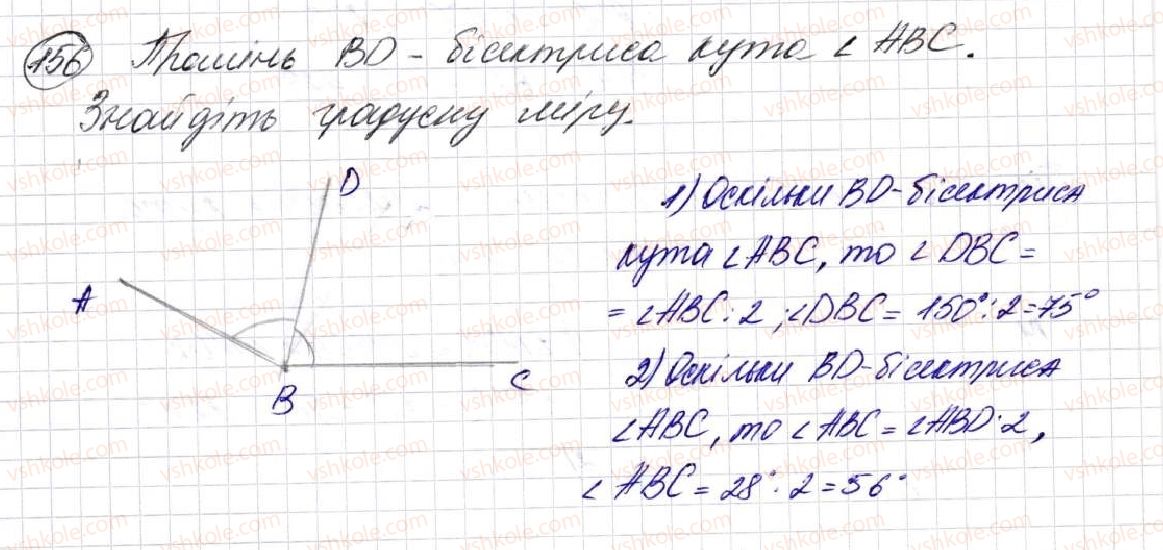 156 Промінь BD - бісектриса кута ∠ ABC.
Знайдіть градусну міру.
D
A
B
C
1) Оскільки BD-бісектриса
кута ∠ABC, то ∠DBC =
= ∠ABC:2; ∠DBC = 150°:2=75°
2) Оскільки BD-бісектриса
∠ABC, то ∠ABC = ∠ABD·2,
∠ABC = 28°·2=56°
vshkole.com